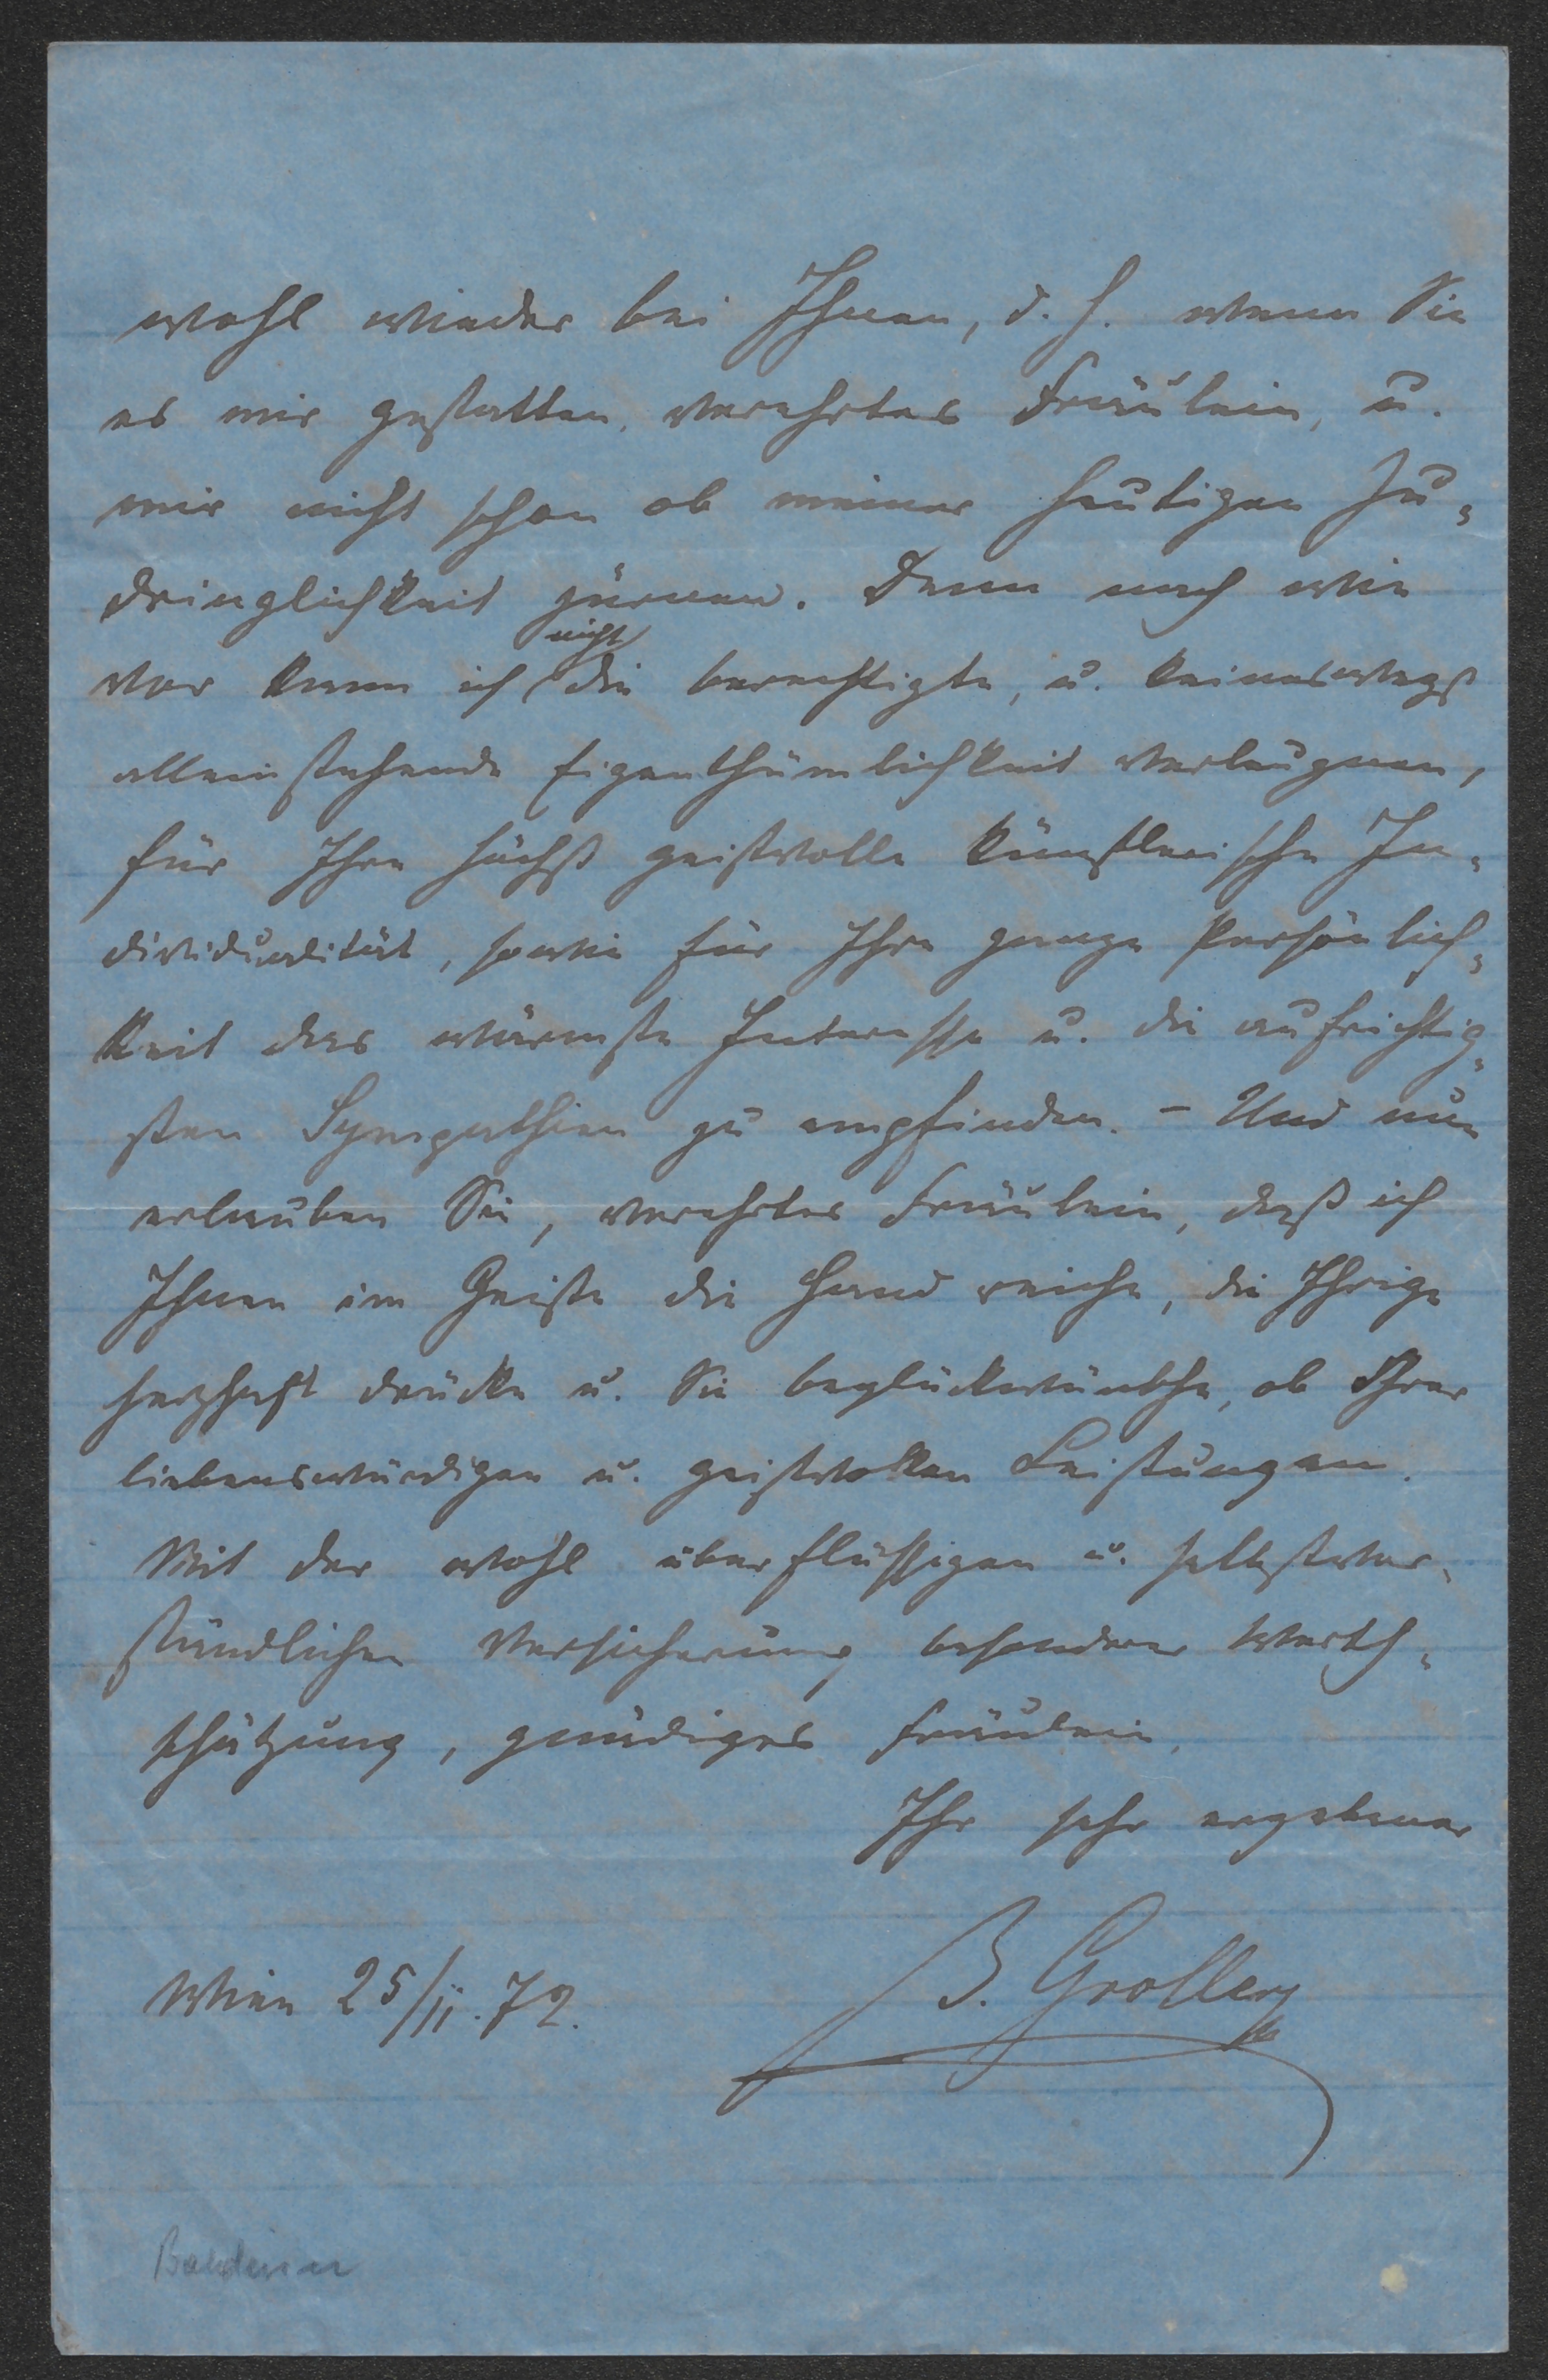 wohl wieder bei Ihnen, d. h. wenn Sie
es mir gestatten, verehrtes Fräulein, u.
mir nicht schon ob meiner heutigen Zu-
dringlichkeit zürnen. Denn nach wie
nicht
vor kann ich die berechtigte, u. keineswegs
alleinstehende Eigenthümlichkeit verleugnen,
für Ihre höchst geistvolle künstlerische In-
dividualität, sowie für Ihre ganze Persönlich-
keit das wärmste Interesse u. die aufrichtig-
sten Sympathien zu empfinden. – Und nun
erlauben Sie, verehrtes Fräulein, daß ich
Ihnen im Geiste die Hand reiche, die Ihrige
herzhaft drücke u. Sie beglückwünsche, ob Ihrer
liebenswürdigen u. geistvollen Leistungen.
Mit der wohl überflüssigen u. selbstver-
ständlichen Versicherung besonderer Werth-
schätzung, gnädiges Fräulein,
Ihr sehr ergebener
B. Groller
Wien 25/II. 72.